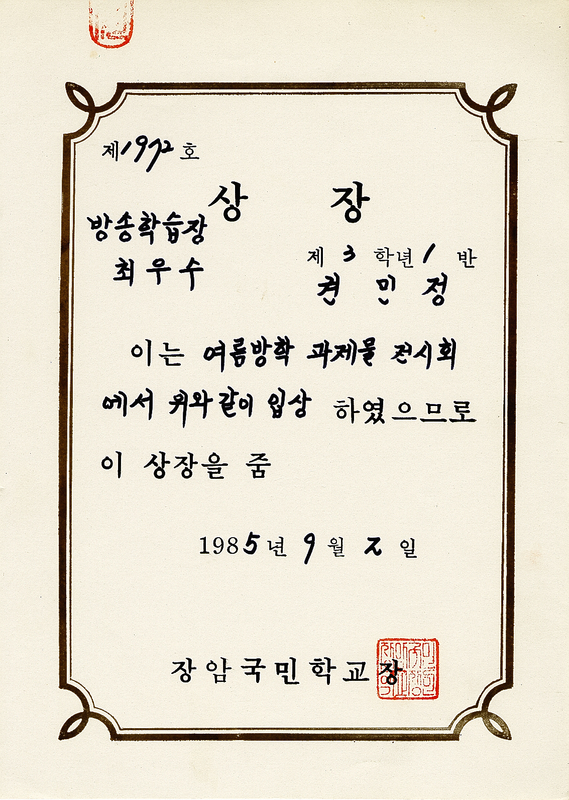 제1972호
상 장
방송학습장
최우수
제 3 학년 1 반
권 민 정
이는 여름방학 과제물 전시회
에서 위와같이 입상 하였으므로
이 상장을 줌
1985년 9월 2일
장암국민학교장